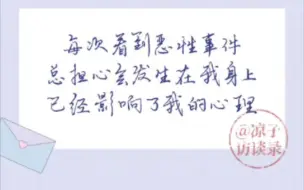 每次看到恶性事件
总担心会发生在我身上
已经影响了我的心理
@凉子
访谈录